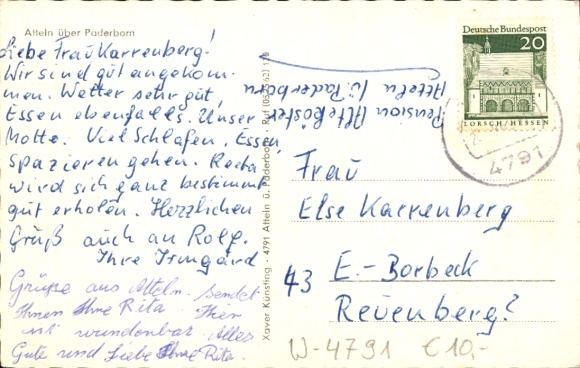 Atteln über Paderborn
Liebe Frau Karrenberg!
Wir sind gut angekom-
men. Wetter sehr gut,
Essen ebenfalls. Unser
Motto. Viel Schlafen, Essen,
Spazieren gehen. Rita
wird sich ganz bestimmt
gut erholen. Herzlichen
Gruß auch an Rolf.
Ihre Irmgard
Grüße aus Atteln. sendet
Ihnen Ihre Rita. Hier
ist wunderbar Alles
Gute und Liebe Ihre Rita.
Xaver Künsting - 4791 Atteln ü. Paderborn - Ruf
Pension Alte Röster
Atteln ü Paderborn
Deutsche Bundespost
20
LORSCH/HESSEN
4791
Frau
Else Karrenberg
43 E.-Borbeck
Reuenberg?
W-4791 €10,-